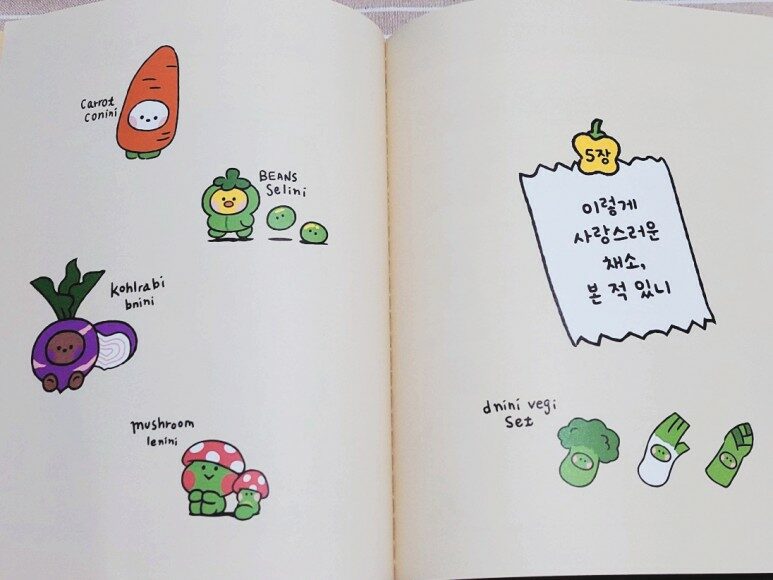 carrot
conini
BEANS
Selini
kohlrabi
bnini
mushroom
lenini
5장
이렇게
사랑스러운
채소,
본 적 있니
dnini vegi
Set